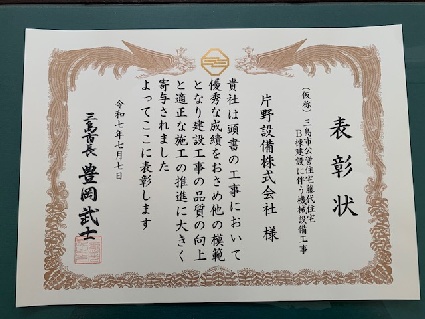 表彰状
(仮称)三島市公営住宅藤代住宅
B棟建設に伴う機械設備工事
片野設備株式会社 様
貴社は頭書の工事において
優秀な成績をおさめ他の模範
となり建設工事の品質の向上
と適正な施工の推進に大きく
寄与されました
よってここに表彰します
令和七年七月七日
三島市長 豊岡武士